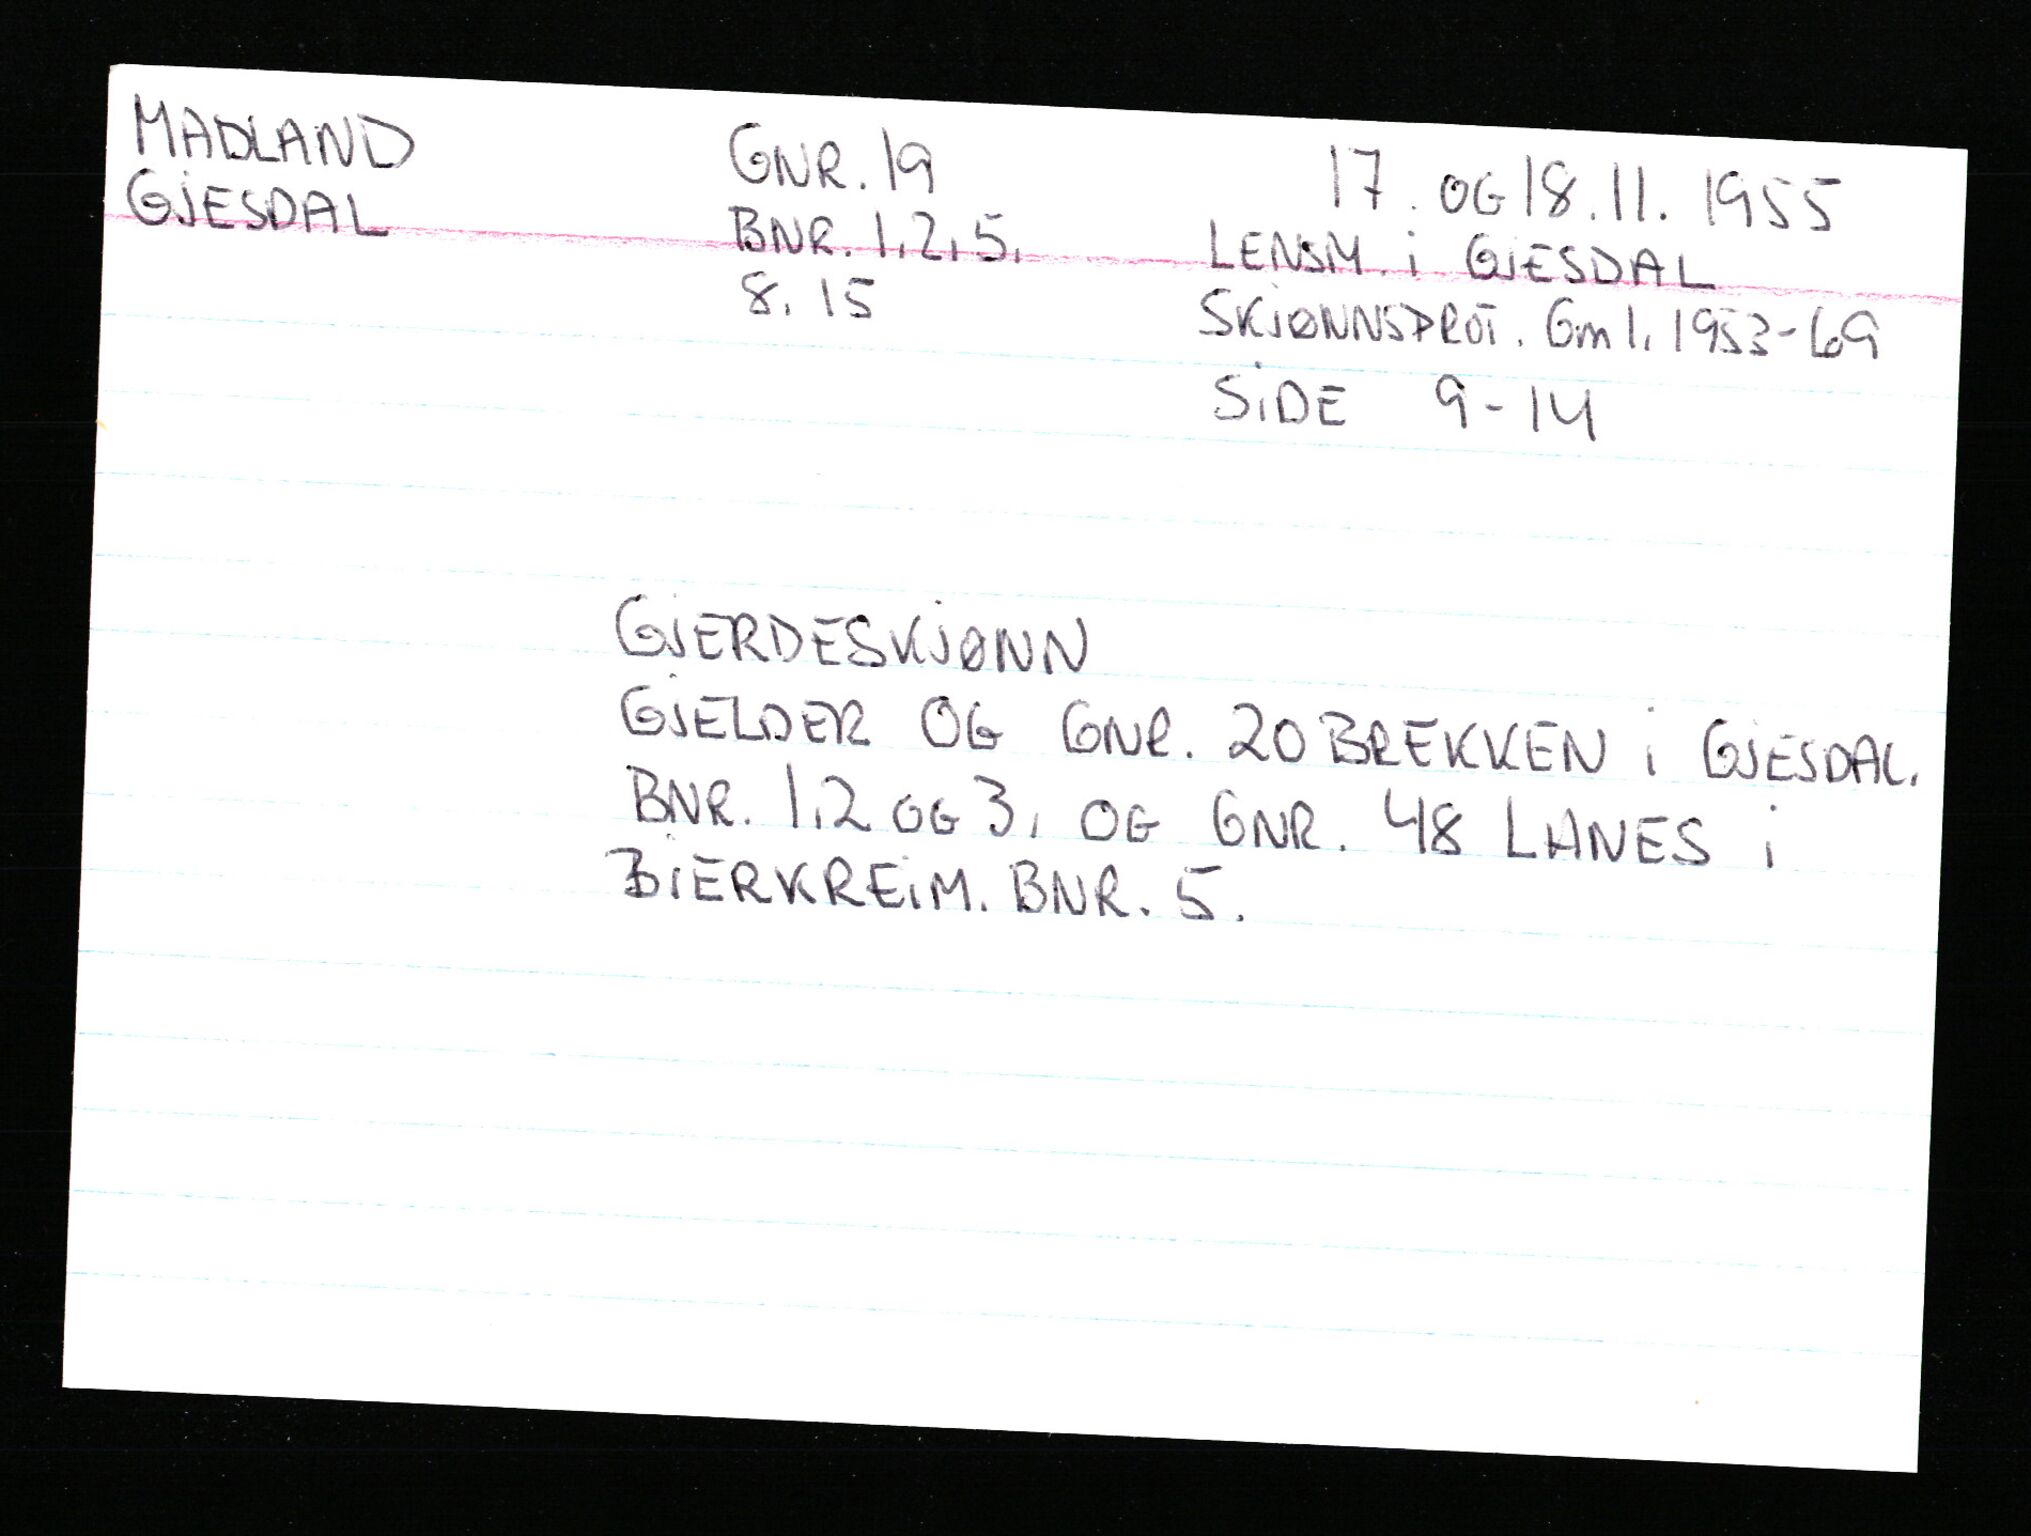 MADLAND
GJESDAL
GNR. 19
BNR. 1, 2, 5,
8, 15
17. OG 18.11. 1955
LENSM. i GJESDAL
SKJØNNSPROT. Gml. 1953-69
SIDE 9-14
GJERDESKJØNN
GJELDER OG GNR. 20 BREKKEN i GJESDAL.
BNR. 1,2 OG 3, OG GNR. 48 LANES i
BJERKREIM. BNR. 5.